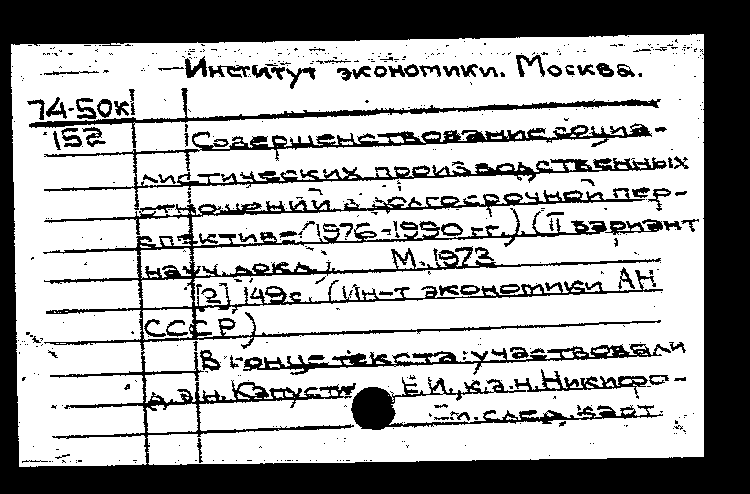 Институт экономики. Москва.
74-50к
152
Совершенствование социа-
листических производственных
отношений в долгосрочной пер-
спективе (1976-1990 гг.). (II вариант
науч. докл.). М., 1973
[2], 149 с. (Ин-т экономики АН
СССР)
В конце текста: участвовали
д.э.н. Капустин Е.И., к.э.н. Никифо-
См. след. карт.